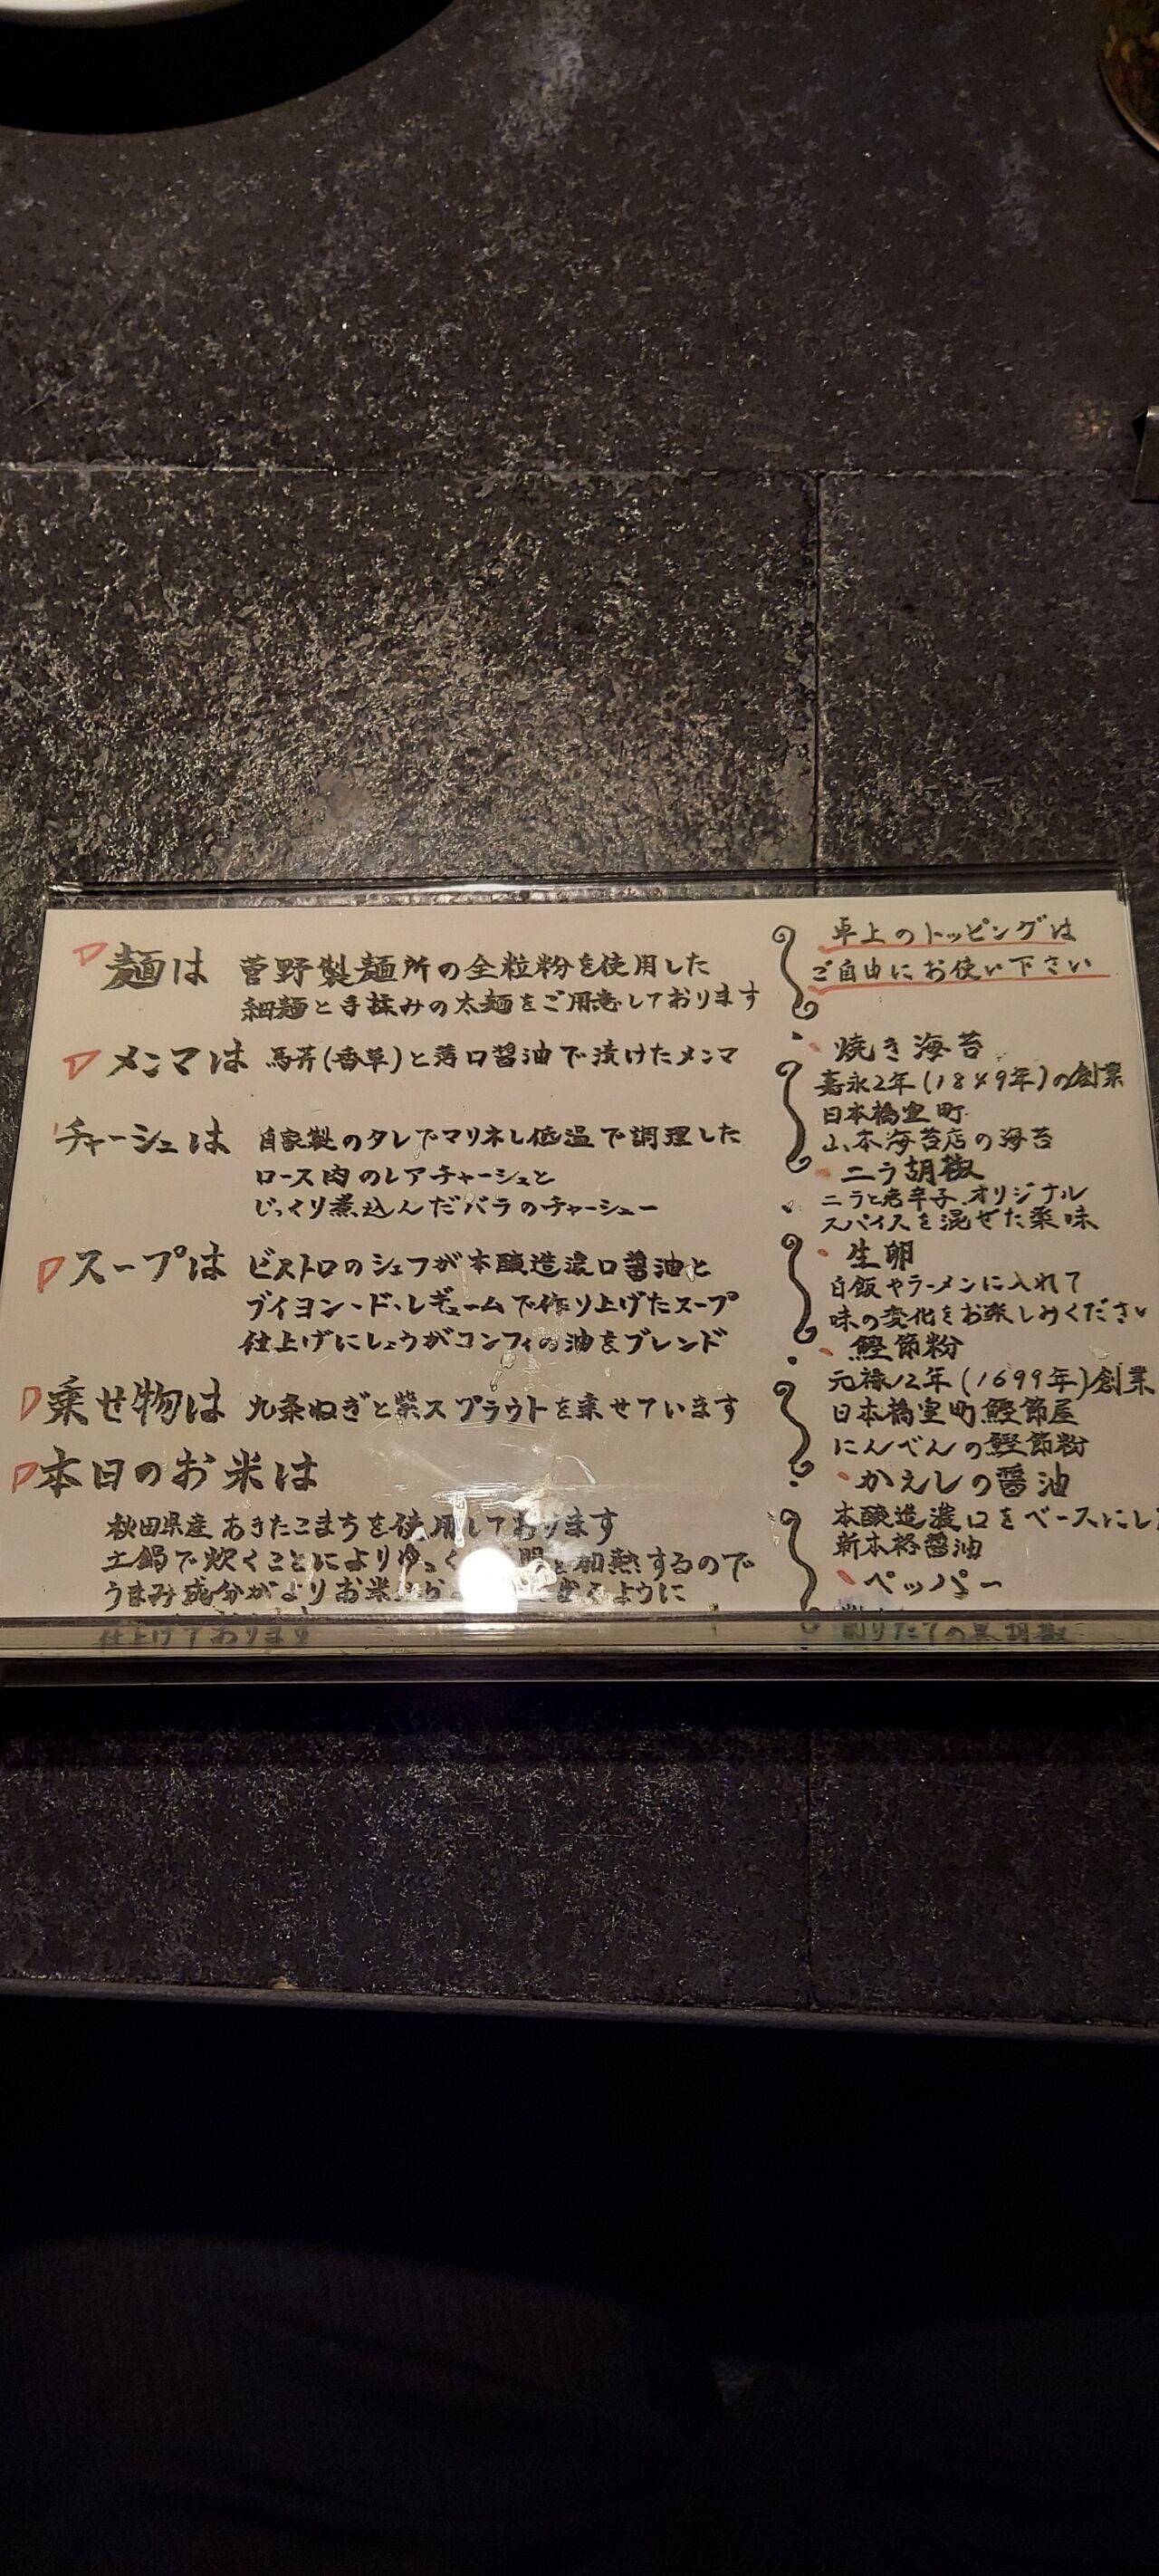 麺は 菅野製麺所の全粒粉を使用した
細麺と手揉みの太麺をご用意しております
メンマは 馬芹(香草)と薄口醤油で漬けたメンマ
チャーシュは 自家製のタレでマリネし低温で調理した
ロース肉のレアチャーシュと
じっくり煮込んだバラのチャーシュー
スープは ビストロのシェフが本醸造濃口醤油と
ブイヨン・ド・レギュームで作り上げたスープ
仕上げにしょうがコンフィの油をブレンド
乗せ物は 九条ねぎと紫スプラウトを乗せています
本日のお米は
秋田県産あきたこまちを使用しております
土鍋で炊くことによりゆっく 加熱するので
うまみ成分がよりお米から ように
仕上げております
卓上のトッピングは
ご自由にお使い下さい
焼き海苔
嘉永2年(1849年)の創業
日本橋室町
山本海苔店の海苔
ニラ胡椒
ニラと唐辛子.オリジナル
スパイスを混ぜた薬味
生卵
白飯やラーメンに入れて
味の変化をお楽しみください
鰹節粉
元禄12年(1699年)創業
日本橋室町鰹節屋
にんべんの鰹節粉
かえしの醤油
本醸造濃口をベースにし
新本格醤油
ペッパー
創りたての黒胡椒